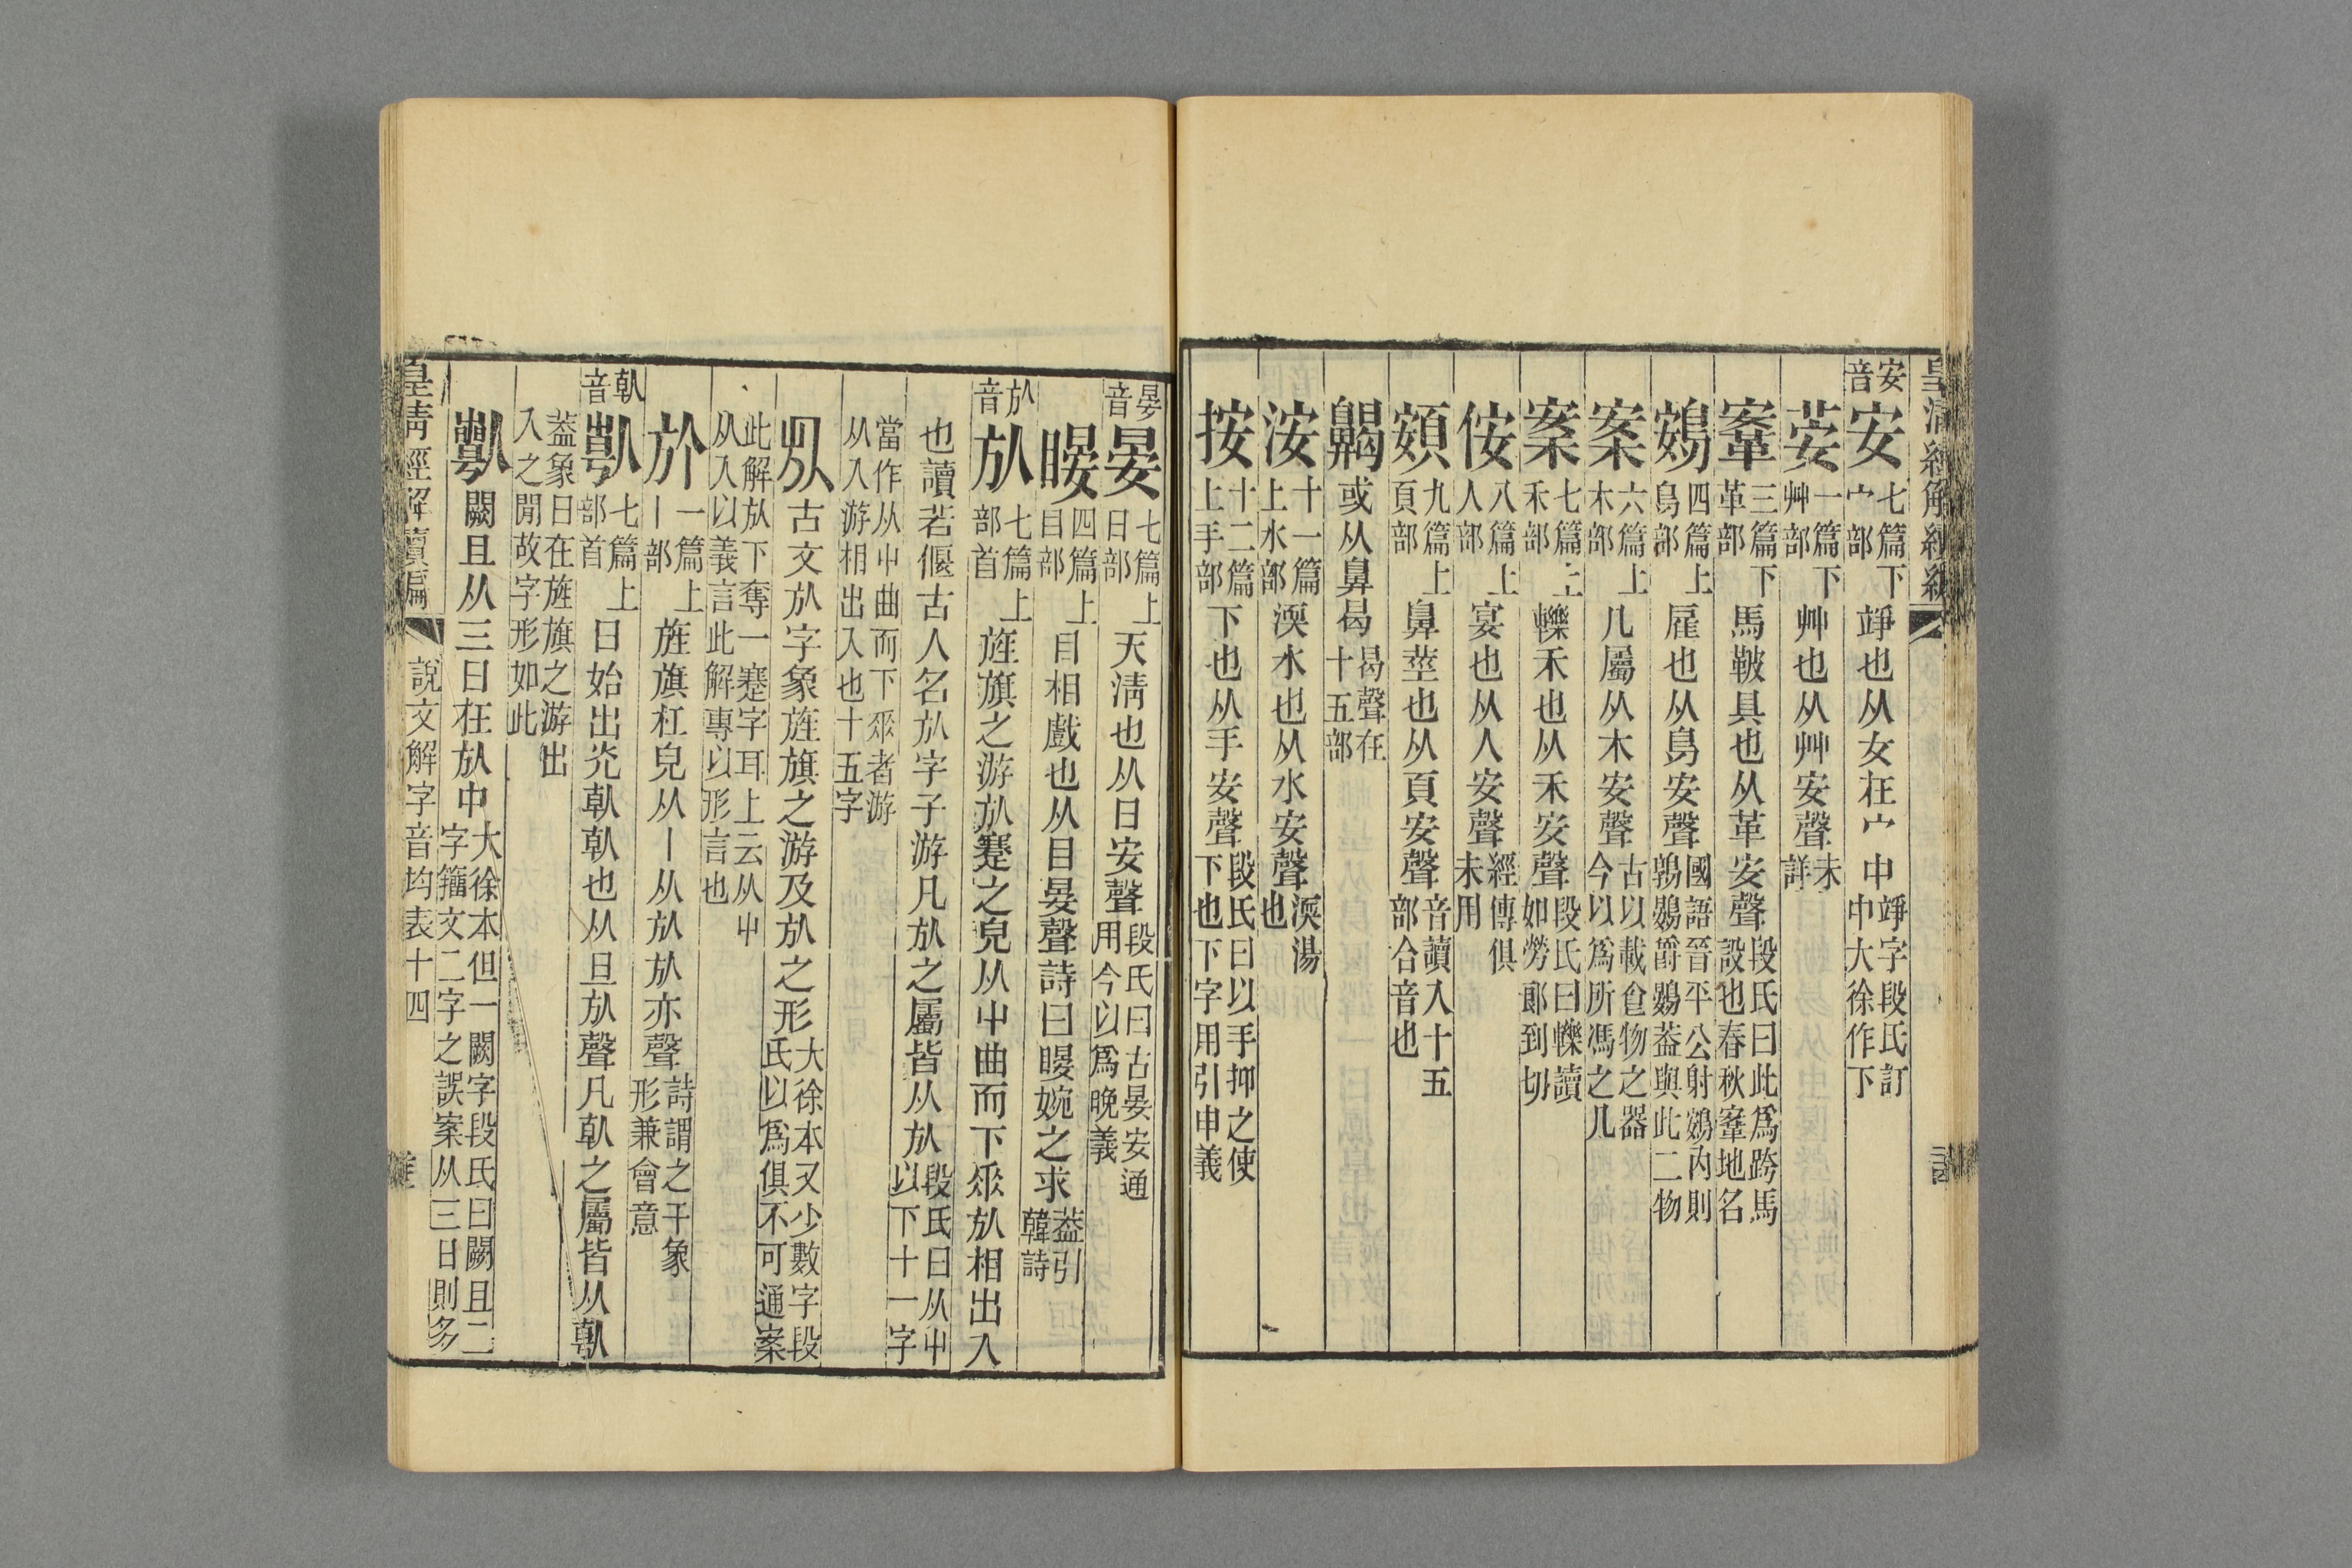 皇清經解續編
安音 安 七篇下宀部 竫也从女在宀中 竫字段氏訂中大徐作下
荌 一篇下艸部 艸也从艸安聲 未詳
鞌 三篇下革部 馬鞁具也从革安聲 段氏曰此爲跨馬設也春秋鞌地名
鴳 四篇上鳥部 雇也从鳥安聲 國語晉平公射鴳內則鶉鷃爵鷃葢與此二物
案 六篇上木部 几屬从木安聲 古以載食物之器今以爲所馮之几
案 七篇上禾部 轢禾也从禾安聲 段氏曰轢讀如勞郞到切
侒 八篇上人部 宴也从人安聲 經傳俱未用
頞 九篇上頁部 鼻莖也从頁安聲 音讀入十五部合音也
齃 或从鼻曷 曷聲在十五部
洝 十一篇上水部 渜水也从水安聲 渜湯也
按 十二篇上手部 下也从手安聲 段氏曰以手抑之使下也下字用引申義
晏音 晏 七篇上日部 天淸也从日安聲 段氏曰古晏安通用今以爲晚義
暥 四篇上目部 目相戲也从目晏聲詩曰暥婉之求 葢引韓詩
㫃音 㫃 七篇上部首 旌旗之游㫃蹇之皃从屮曲而下垂㫃相出入
也讀若偃古人名㫃字子游凡㫃之屬皆从㫃 段氏曰从屮以下十一字
當作从屮曲而下垂者游从入游相出入也十五字
古文㫃字象旌旗之游及㫃之形 大徐本又少數字段氏以爲俱不可通案
此解㫃下奪一蹇字耳上云从屮从入以義言此解專以形言也
㫃 一篇上丨部 旌旗杠皃从丨从㫃㫃亦聲 詩謂之干象形兼會意
倝音 倝 七篇上部首 日始出光倝倝也从旦㫃聲凡倝之屬皆从倝
葢象日在旌旗之游出入之閒故字形如此
闕且从三日在㫃中 大徐本但一闕字段氏曰闕且二字籒文二字之誤案从三日則多
皇清經解續編 說文解字音均表十四